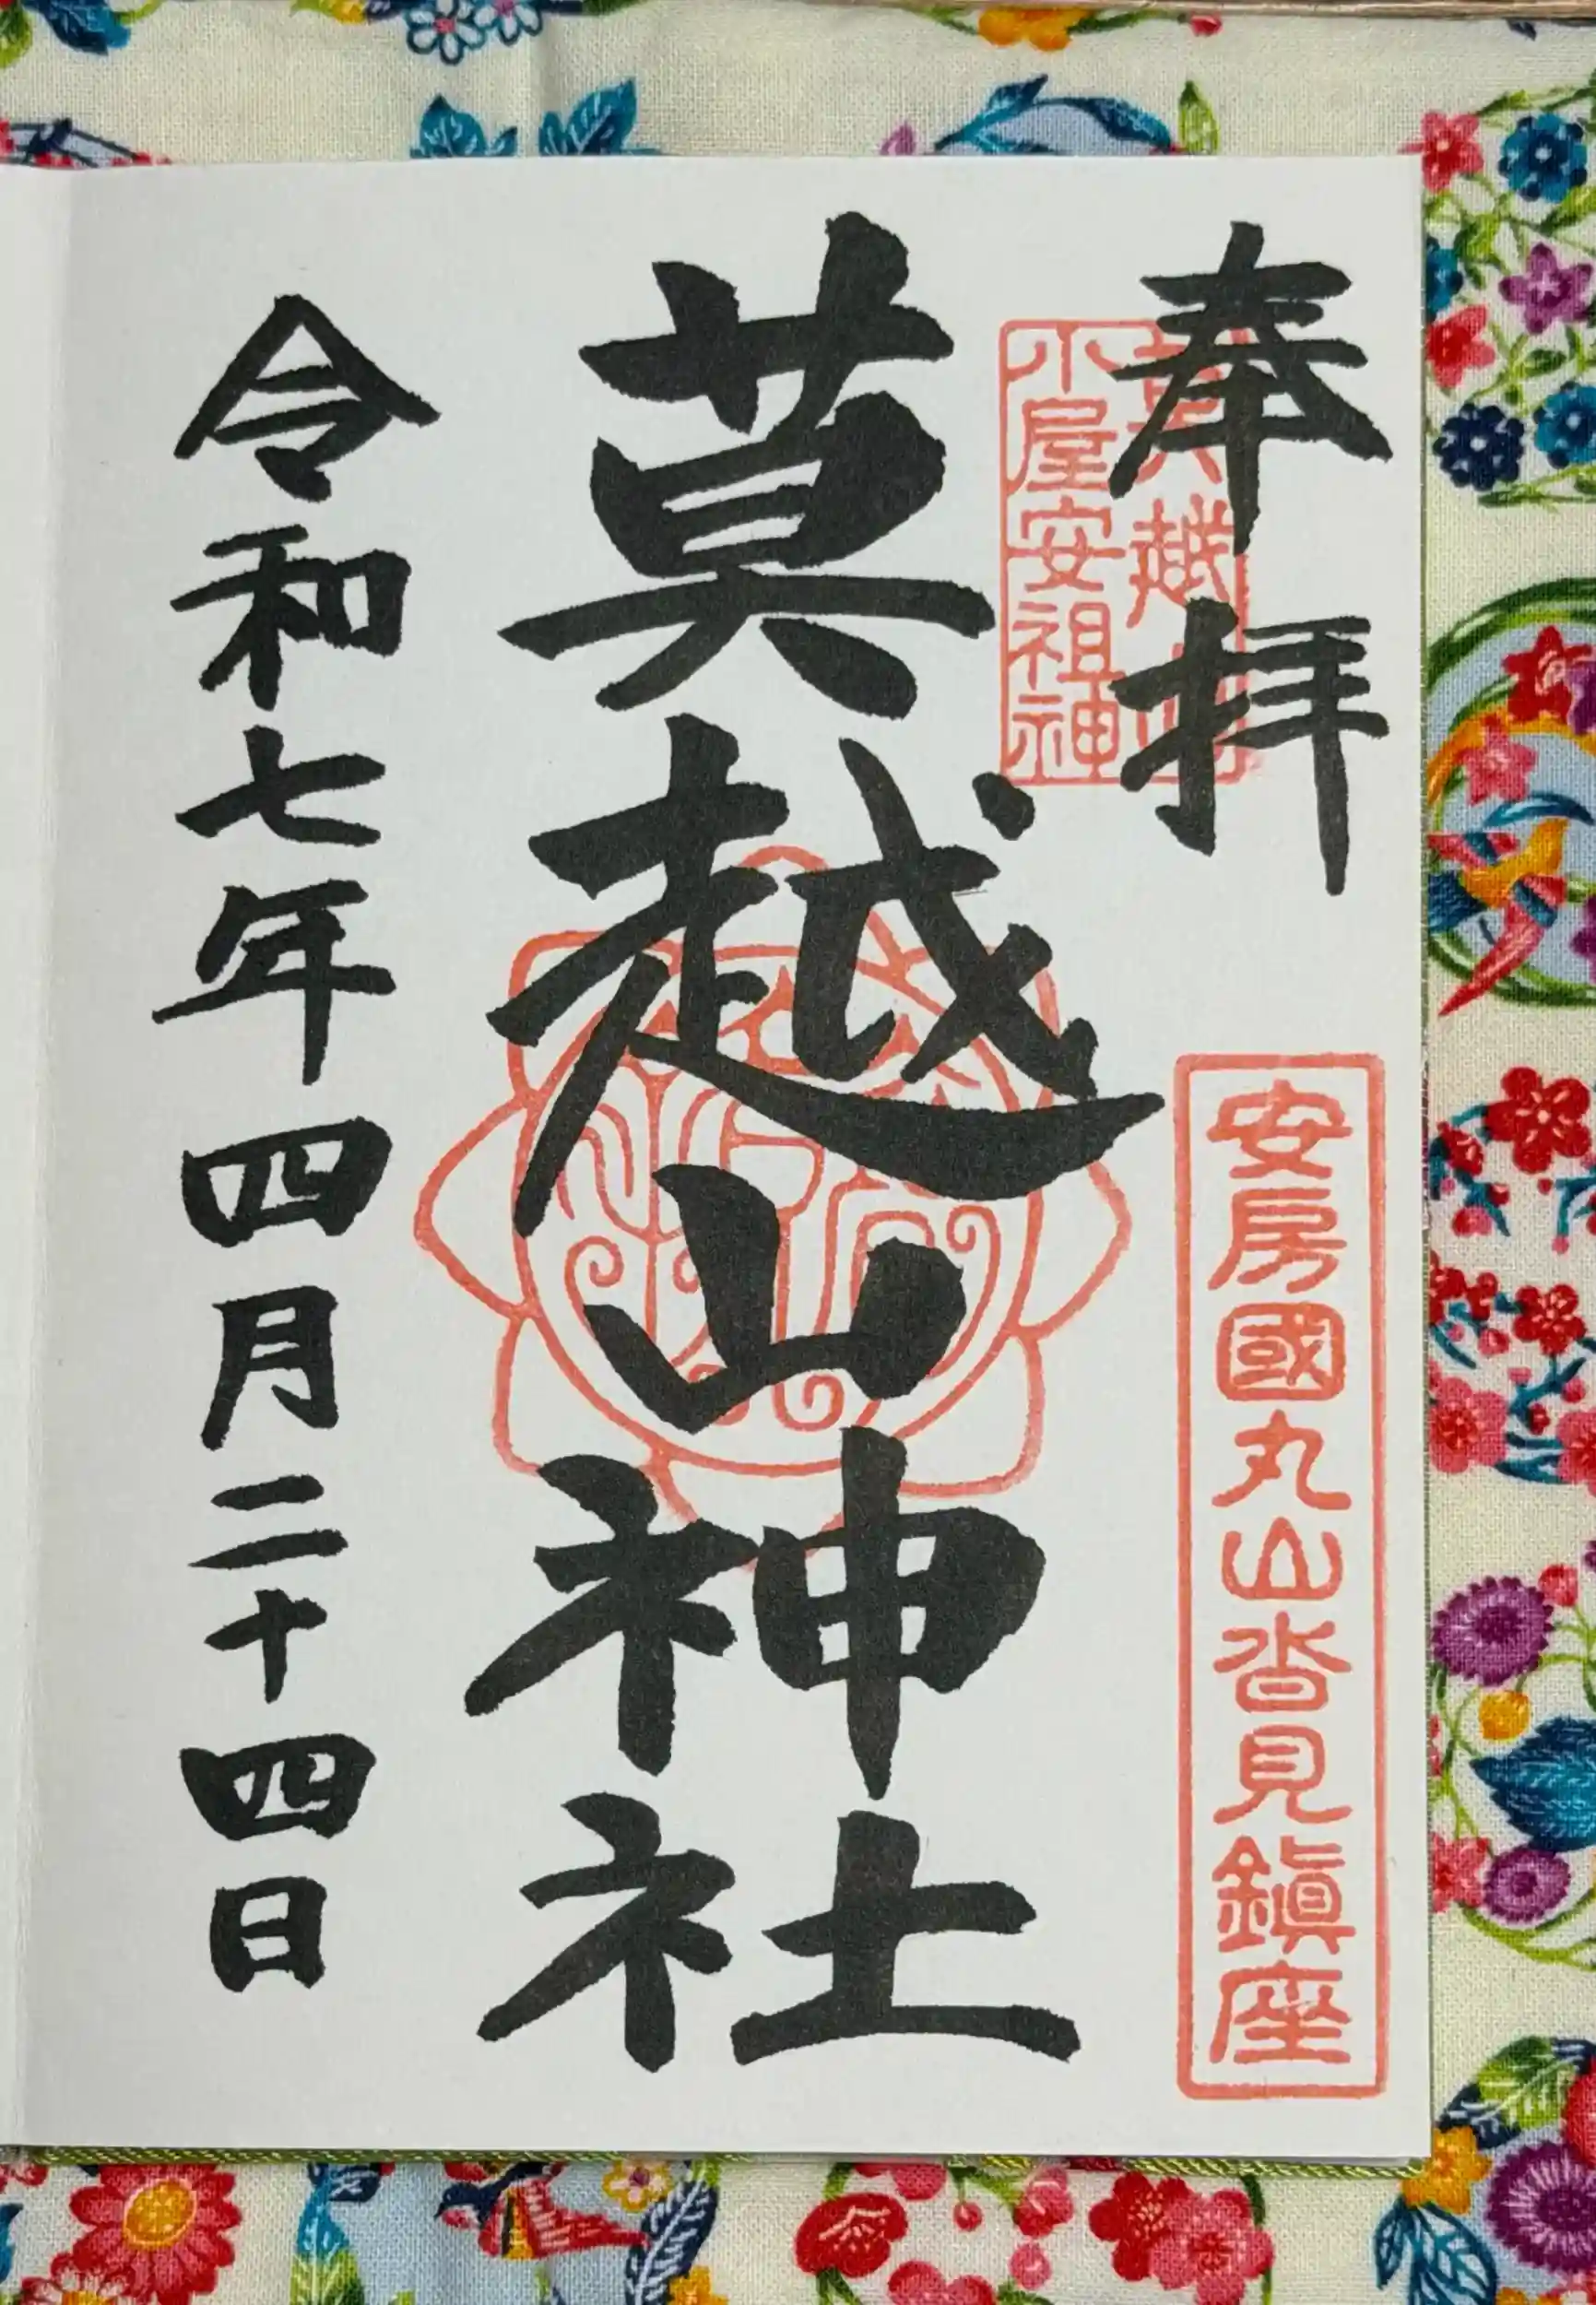 奉拝
莫越山
小屋安祖神
安房國丸山沓見鎮座
莫越山神社
令和七年四月二十四日